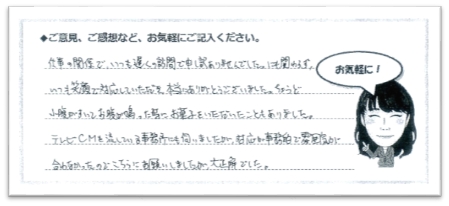 ◆ご意見、ご感想など、お気軽にご記入ください。
お気軽に！
仕事の関係で、いつも遅くの訪問で申し訳ありませんでした。にも関わらず、
いつも笑顔で対応していただき、本当にありがとうございました。ちょうど
小腹がすいてお腹が鳴った時にお菓子をいただいたこともありました。
テレビCMを流している事務所にも伺いましたが、対応が事務的で雰囲気が
合わなかったのでこちらにお願いしましたが、大正解でした。